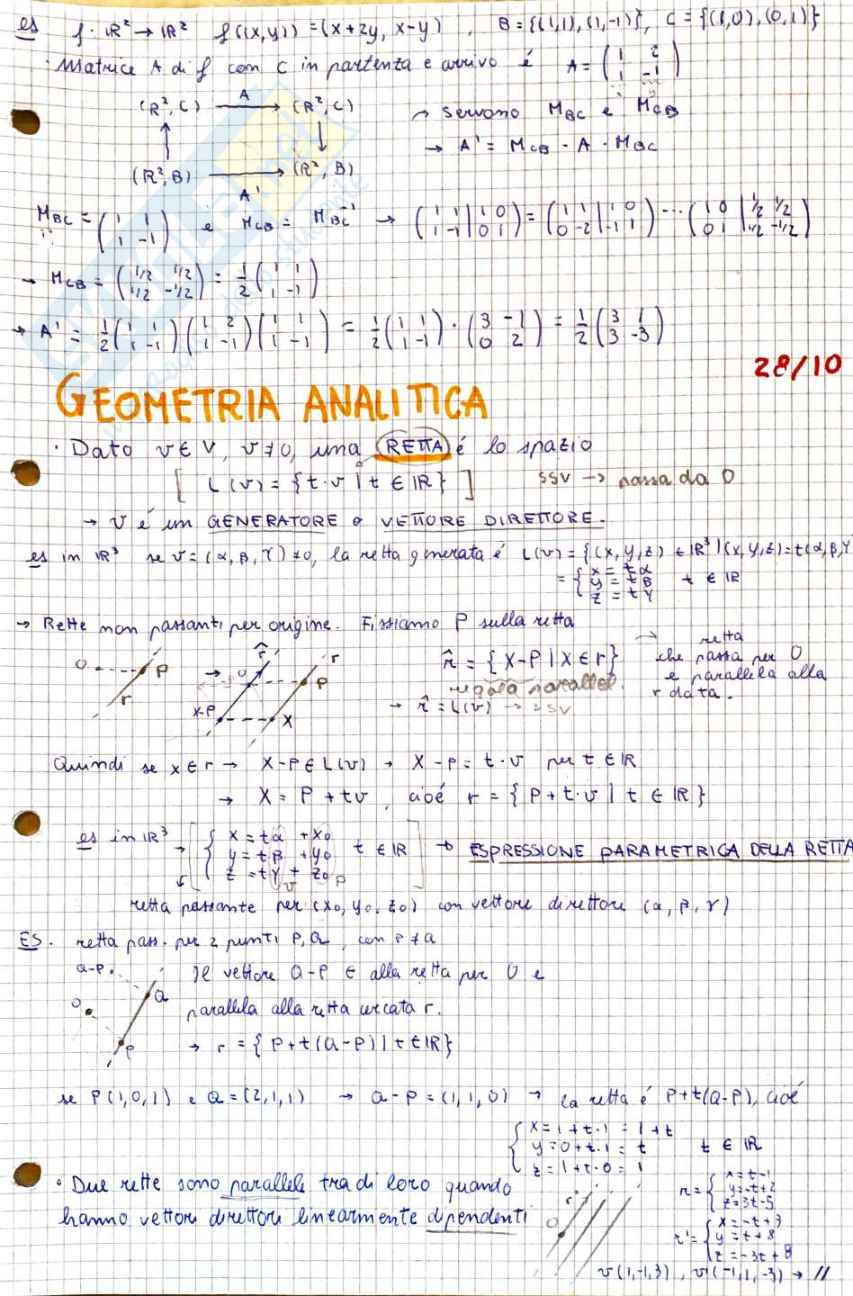 es f: ℝ² → ℝ² f((x,y)) = (x+2y, x-y), B = {(1,1), (1,-1)}, C = {(1,0), (0,1)}
· Matrice A di f con C in partenza e arrivo è A = (1 2 / 1 -1)
(R², C) —A→ (R², C) → servono M_BC e M_CB
→ A' = M_CB · A · M_BC
(R², B) —A'→ (R², B)
M_BC = (1 1 / 1 -1) e M_CB = M_BC⁻¹ → (1 1 | 1 0 / 1 -1 | 0 1) = (1 1 | 1 0 / 0 -2 | -1 1) ... (1 0 | 1/2 1/2 / 0 1 | 1/2 -1/2)
→ M_CB = (1/2 1/2 / 1/2 -1/2) = 1/2 (1 1 / 1 -1)
→ A' = 1/2 (1 1 / 1 -1) (1 2 / 1 -1) (1 1 / 1 -1) = 1/2 (1 1 / 1 -1) · (3 -1 / 0 2) = 1/2 (3 1 / 3 -3)
28/10
GEOMETRIA ANALITICA
· Dato v ∈ V, v ≠ 0, una RETTA è lo spazio
[ L(v) = {t·v | t ∈ ℝ} ] SSV → passa da 0
→ v è un GENERATORE o VETTORE DIRETTORE.
es in ℝ³ se v = (α, β, γ) ≠ 0, la retta generata è L(v) = {(x,y,z) ∈ ℝ³ | (x,y,z) = t(α,β,γ
= { x = tα
y = tβ t ∈ ℝ
z = tγ
→ Rette non passanti per origine. Fissiamo P sulla retta
O P r → r̂ O r P X-P X
r̂ = {X-P | X ∈ r} → retta che passa per O e parallela alla r data.
regola parallel.
→ r̂ = L(v) → SSV
Quindi se x ∈ r → X-P ∈ L(v) → X-P = t·v per t ∈ ℝ
→ X = P + tv, cioé r = {P + t·v | t ∈ ℝ}
es in ℝ³ → [ { x = tα + x₀
y = tβ + y₀ t ∈ ℝ ] → ESPRESSIONE PARAMETRICA DELLA RETTA
z = tγ + z₀
v P
retta passante per (x₀, y₀, z₀) con vettore direttore (α, β, γ)
ES. retta pass. per 2 punti P, Q, con P ≠ Q
Q-P O Q P
Il vettore Q-P ∈ alla retta per O e
parallela alla retta cercata r.
→ r = {P + t(Q-P) | t ∈ ℝ}
se P(1,0,1) e Q = (2,1,1) → Q-P = (1,1,0) → la retta é P+t(Q-P), cioé
{ x = 1+t·1 = 1+t
y = 0+t·1 = t t ∈ ℝ
z = 1+t·0 = 1
· Due rette sono parallele tra di loro quando
hanno vettori direttori linearmente dipendenti
O r
r = { x = t-1
y = -t+2
z = 3t-5
r' = { x = -t+3
y = t+8
z = -3t+8
v(1,-1,3), v(-1,1,-3) → //